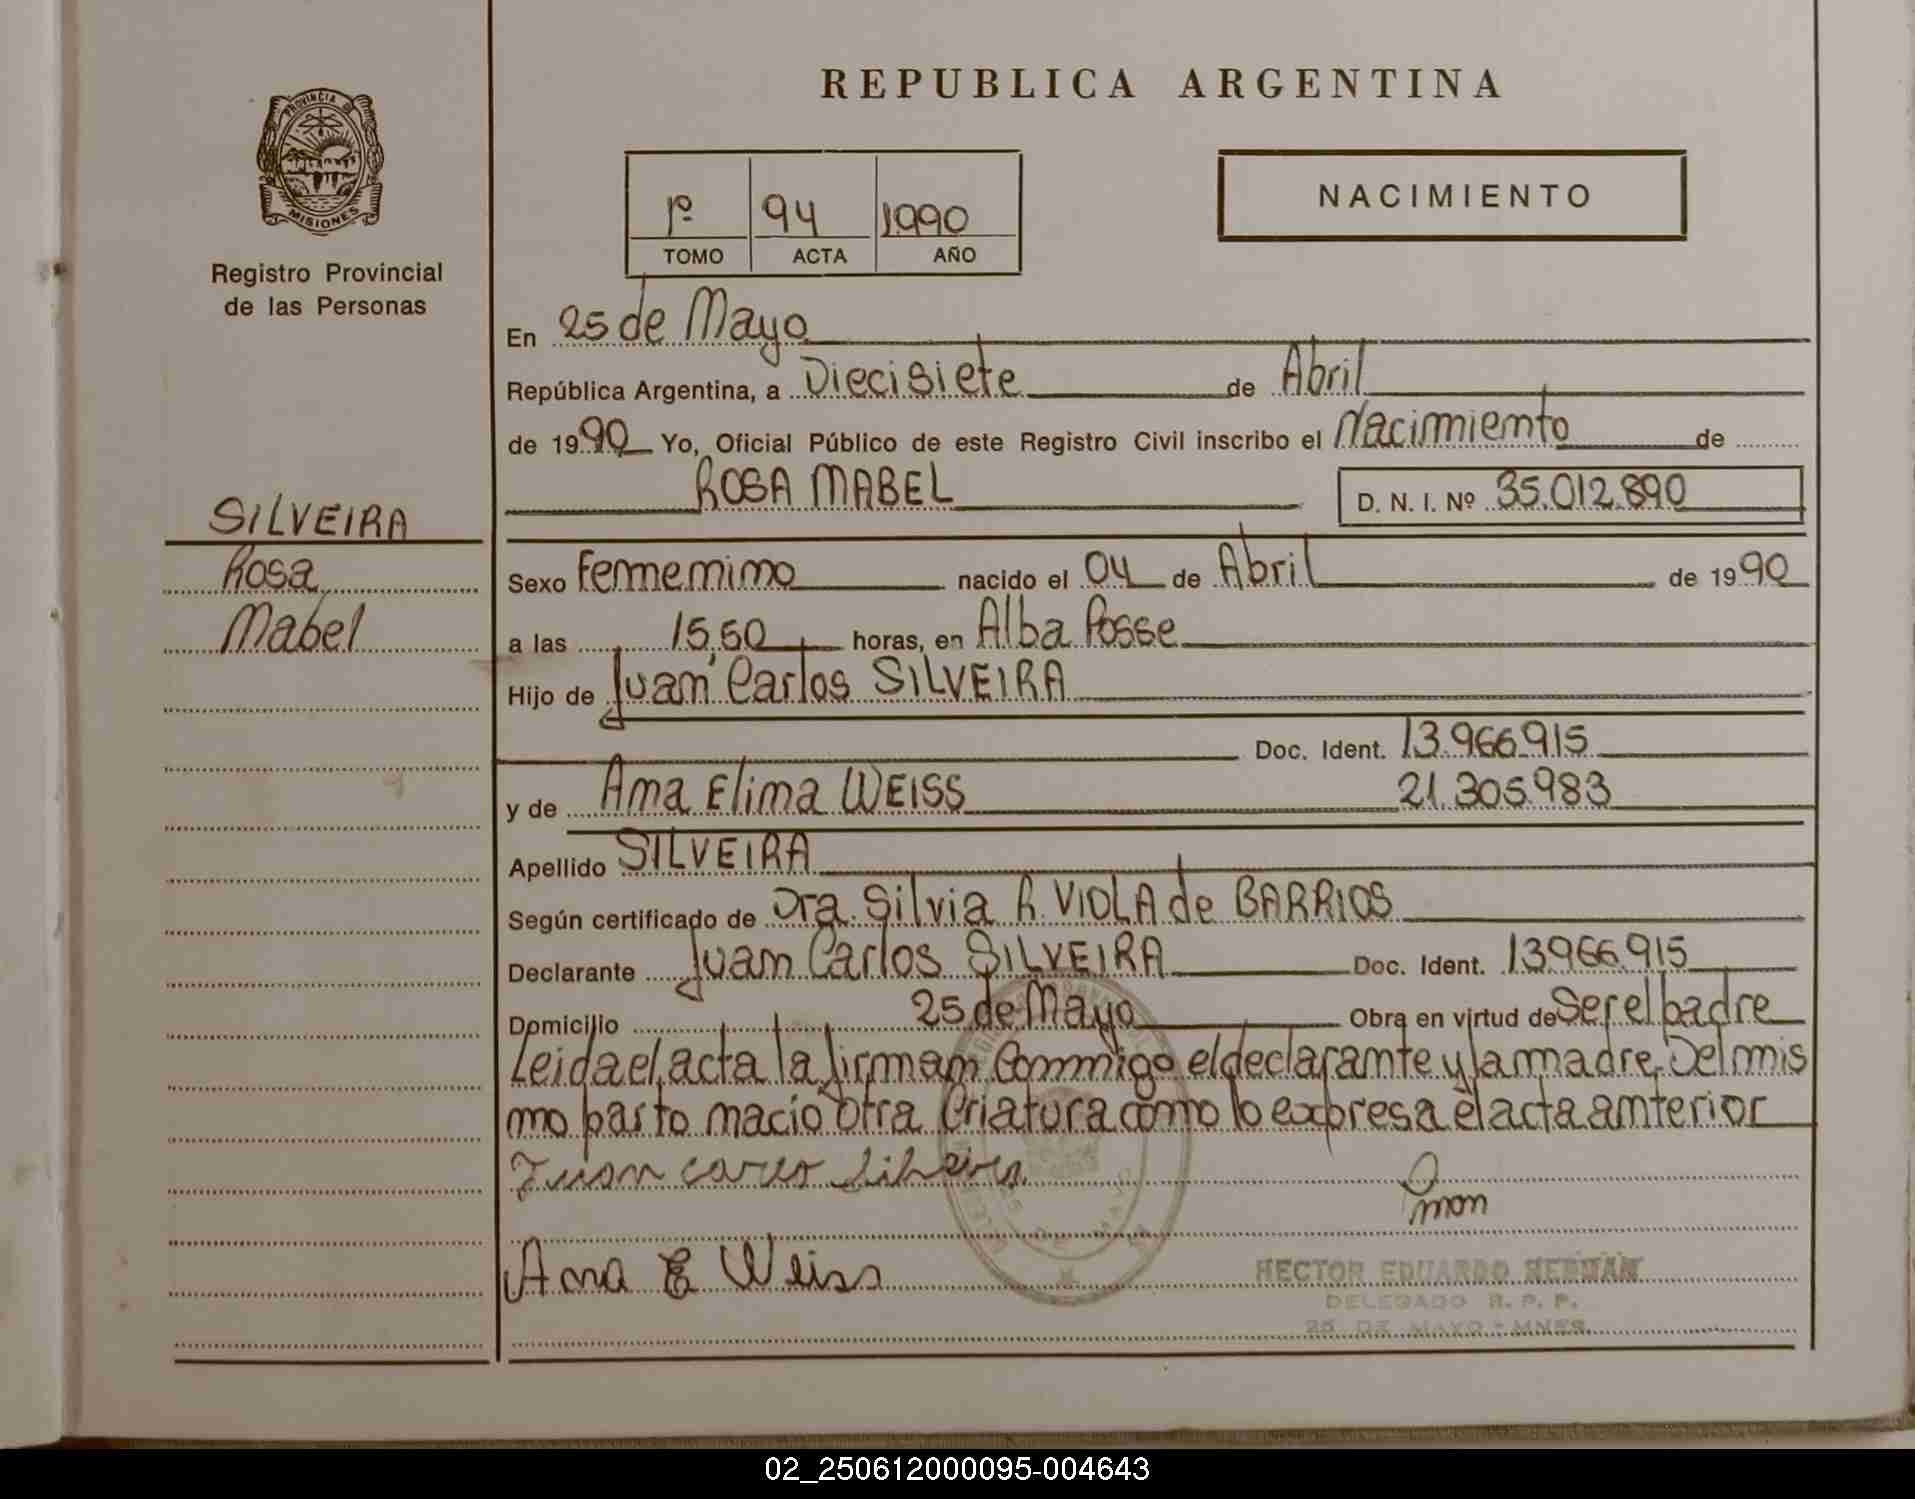 REPUBLICA ARGENTINA
PROVINCIA DE
MISIONES
Registro Provincial
de las Personas
1º 94 1990
TOMO ACTA AÑO
NACIMIENTO
En 25 de Mayo
República Argentina, a Diecisiete de Abril
de 1990 Yo, Oficial Público de este Registro Civil inscribo el Nacimiento de
ROSA MABEL D. N. I. Nº 35.012.890
SILVEIRA
Rosa
Mabel
Sexo Femenino nacido el 04 de Abril de 1990
a las 15,50 horas, en Alba Posse
Hijo de Juan Carlos SILVEIRA
Doc. Ident. 13.966.915
y de Ana Elina WEISS 21.305.983
Apellido SILVEIRA
Según certificado de Dra. Silvia R. VIOLA de BARRIOS
Declarante Juan Carlos SILVEIRA Doc. Ident. 13.966.915
Domicilio 25 de Mayo Obra en virtud de Ser el padre
Leida el acta la firman Conmigo el declarante y la madre. Del mis
mo parto nacio otra Criatura como lo expresa el acta anterior
Juan
Ana E Weiss
HECTOR EDUARDO HERNAN
DELEGADO R. P. P.
25 DE MAYO - MNES.
02_250612000095-004643